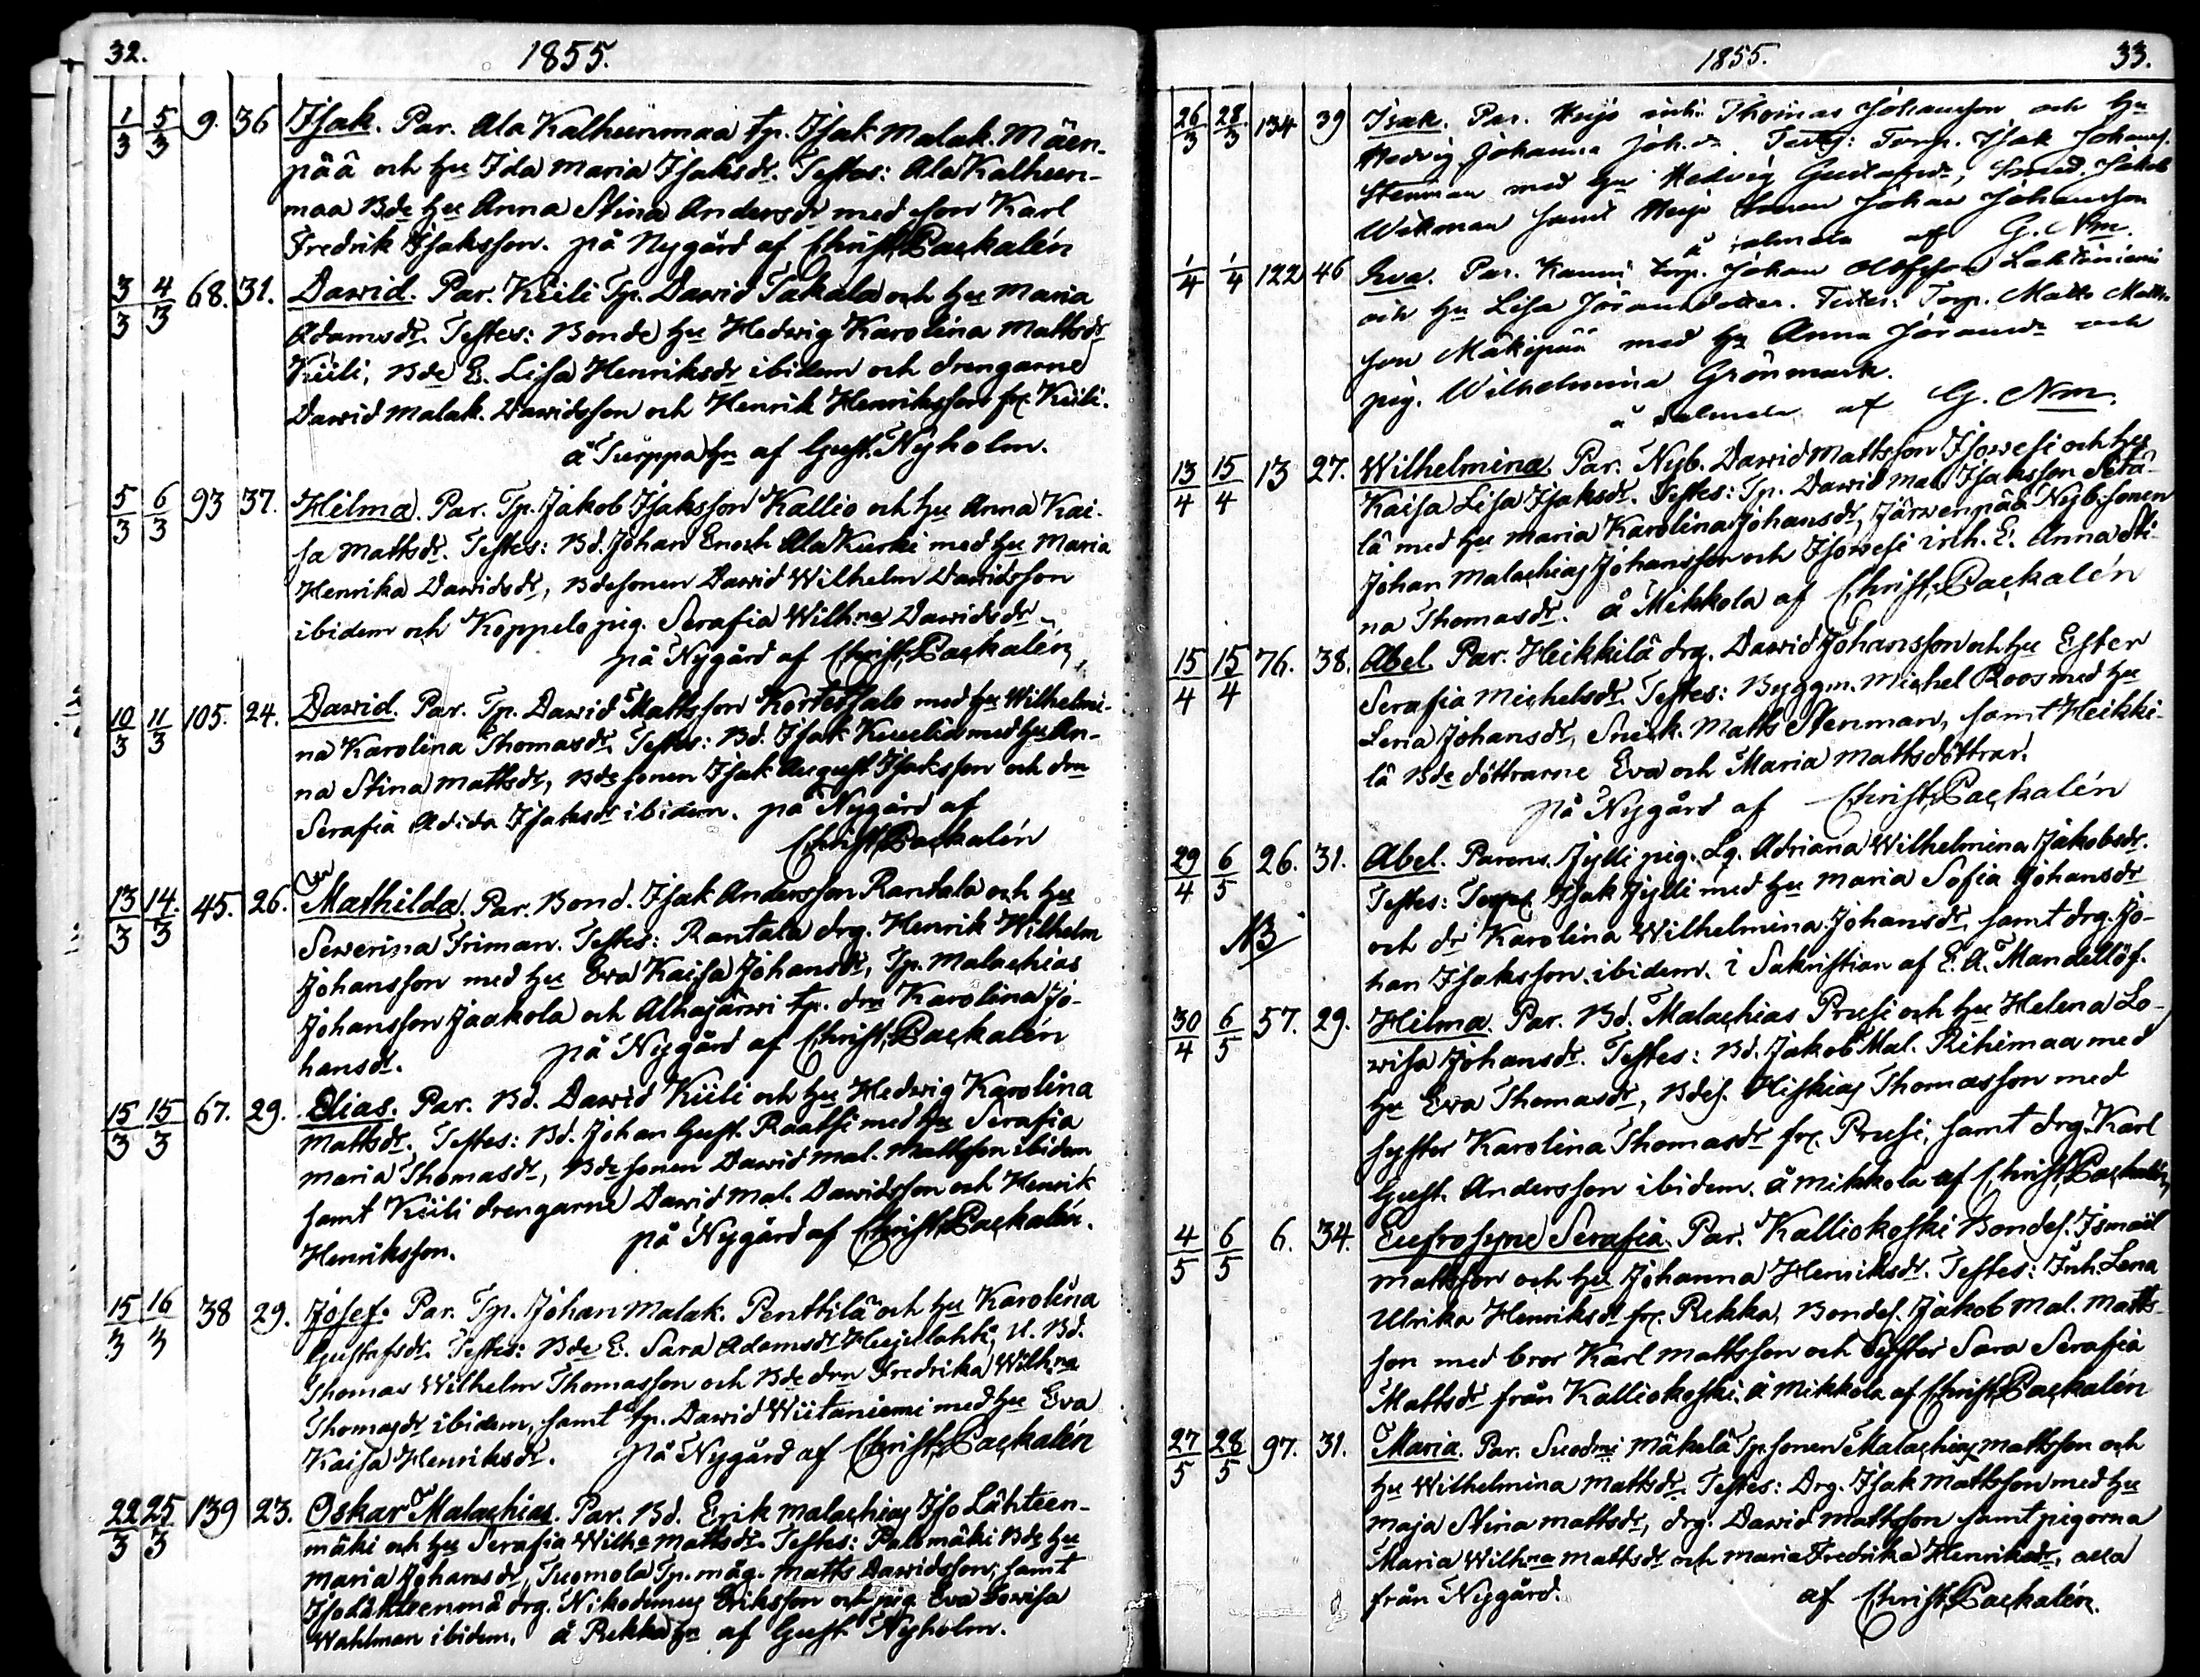 32.
1855.
1/3 5/3 9. 36 Isak. Par. Ala Kalhuunmaa tp. Isak Malak. Mäen-
pää och hu Ida Maria Isaksdr. Testes: Ala Kalhuun-
maa Bde hu Anna Stina Andersdr med son Karl
Fredrik Isaksson. på Nygård af Christ. Paekalén
3/3 4/3 68. 31. Dawid. Par. Kiili Tp. Dawid Takala och hu Maria
Adamsdr. Testes: Bonde hu Hedwig Karolina Mattsdr
Kiili, Bde E. Lisa Henriksdr ibidem och drengarne
Dawid Malak. Dawidsson och Henrik Henriksson fr. Kiili.
å Turppa hn af Gust. Nyholm.
5/3 6/3 93 37. Hilma. Par. Tp. Jakob Isaksson Kallio och hu Anna Kai-
sa Mattsdr. Testes: Bd. Johan Enoch Ala Kurki med hu Maria
Henrika Dawidsdr, Bdesonen Dawid Wilhelm Dawidsson
ibidem och Koppelo pig. Serafia Wilhna Dawidsdr.
på Nygård af Christ. Paekalén
10/3 11/3 105. 24. Dawid. Par. Tp. Dawid Mattsson Kortessalo med hu Wilhelmi-
na Karolina Thomasdr. Testes: Bd. Isak Kuulia med hu An-
na Stina Mattsdr, Bdesonen Isak August Isaksson och drn
Serafia Adida Isaksdr ibidem. på Nygård af
Christ. Paekalén
13/3 14/3 45. 26. Mathilda. Par. Bond. Isak Andersson Rantala och hu
Sewerina Friman. Testes: Rantala drg. Henrik Wilhelm
Johansson med hu Eva Kaisa Johansdr, Tp. Malachias
Johansson Jaakola och Alhajärwi tp. drn Karolina Jo-
hansdr. på Nygård af Christ. Paekalén
15/3 15/3 67. 29. Elias. Par. Bd. Dawid Kiili och hu Hedwig Karolina
Mattsdr. Testes: Bd. Johan Gust. Raatsi med hu Serafia
Maria Thomasdr, Bdesonen Dawid Mal. Mattsson ibidem
samt Kiili drengarne Dawid Mal. Dawidsson och Henrik
Henriksson. på Nygård af Christ. Paekalén.
15/3 16/3 38 29. Josef. Par. Tp. Johan Malak. Penttilä och hu Karolina
Gustafsdr. Testes: Bde E. Sara Adamsdr U. Bd.
Thomas Wilhelm Thomasson och Bde drn Fredrika Wilhna
Thomasdr ibidem, samt tp. Dawid Wiitaniemi med hu Eva
Kaisa Henriksdr. på Nygård af Christ. Paekalén
22/3 25/3 139 23. Oskar Malachias. Par. Bd. Erik Malachias Iso Lähteen-
mäki och hu Serafia Wilha Mattsdr. Testes: Palomäki Bde hu
Maria Johansdr, Tuomola Tp. måg. Matts Dawidsson, samt
Isolähteenmä drg. Nikodemus Eriksson och pig. Eva Lowisa
Wahlman ibidem. å Rekka hn af Gust. Nyholm.
1855.
33.
26/3 28/3 134 39 Isak. Par. inh. Thomas Johansson och hu
Hedvig Johanna Joh.dr. Test: Torp. Isak Johanss.
Stenman med hu Hedvig Gustafsdr, Smed. Jakob
Wikman samt Johan Johansson
å Salmela af G. Nm.
1/4 1/4 122 46 Eva. Par. Kanni torp. Johan Olofsson Laktoniemi
och hu Lisa Joransdotter. Testes: Torp. Matts Matts-
son Mäkipää med hu Anna Joransdr och
pig. Wilhelmina Grönmark.
å Salmela af G. Nm.
13/4 15/4 13 27. Wilhelmina. Par. Nyb. Dawid Mattsson Isowesi och hu
Kaisa Lisa Isaksdr. Testes: Tp. Dawid Mal. Isaksson Setä-
lä med hu Maria Karolina Johansdr, Järwenpää Nyb.sonen
Johan Malachias Johansson och Isowesi inh. E. Anna Sti-
na Thomasdr. å Mikkola af Christ. Paekalén
15/4 15/4 76. 38. Abel. Par. Heikkilä drg. Dawid Johansson och hu Ester
Serafia Michelsdr. Testes: Byggm. Michel Roos med hu
Lena Johansdr, Snick. Matts Stenman, samt Heikki-
lä Bde döttrarne Eva och Maria Mattsdöttrar.
på Nygård af Christ. Paekalén
29/4 6/5 26. 31. Abel. Parens. Jylli pig. Lg. Adriana Wilhelmina Jakobsdr.
Testes: Torp. Isak Jylli med hu Maria Sofia Johansdr
NB och dr Karolina Wilhelmina Johansdr, samt drg. Jo-
han Isaksson. ibidem. i Sakristian af E. A. Mandellöf.
30/4 6/5 57. 29. Hilma. Par. Bd. Malachias Prusi och hu Helena Lo-
wisa Johansdr. Testes: Bd. Jakob Mal. Rihimaa med
hu Eva Thomasdr, Bdes. Hiskias Thomasson med
syster Karolina Thomasdr fr. Prusi, samt drg. Karl
Gust. Andersson ibidem. å Mikkola af Christ. Paekalén
4/5 6/5 6. 34. Eufrosyne Serafia. Par. Kalliokoski Bondes. Ismael
Mattsson och hu Johanna Henriksdr. Testes: Inh. Lena
Ulrika Henriksdr fr. Rekka, Bondes. Jakob Mal. Matts-
son med bror Karl Mattsson och Syster Sara Serafia
Mattsdr från Kalliokoski. å Mikkola af Christ. Paekalén
27/5 28/5 97. 31. Maria. Par. Suodni Mäkelä Tp.sonen Malachias Mattsson och
hu Wilhelmina Mattsdr. Testes: Drg. Isak Mattsson med hu
Maja Stina Mattsdr, drg. Dawid Mattsson samt pigorna
Maria Wilhna Mattsdr och Maria Fredrika Henriksdr, alla
från Nygård. af Christ. Paekalén.